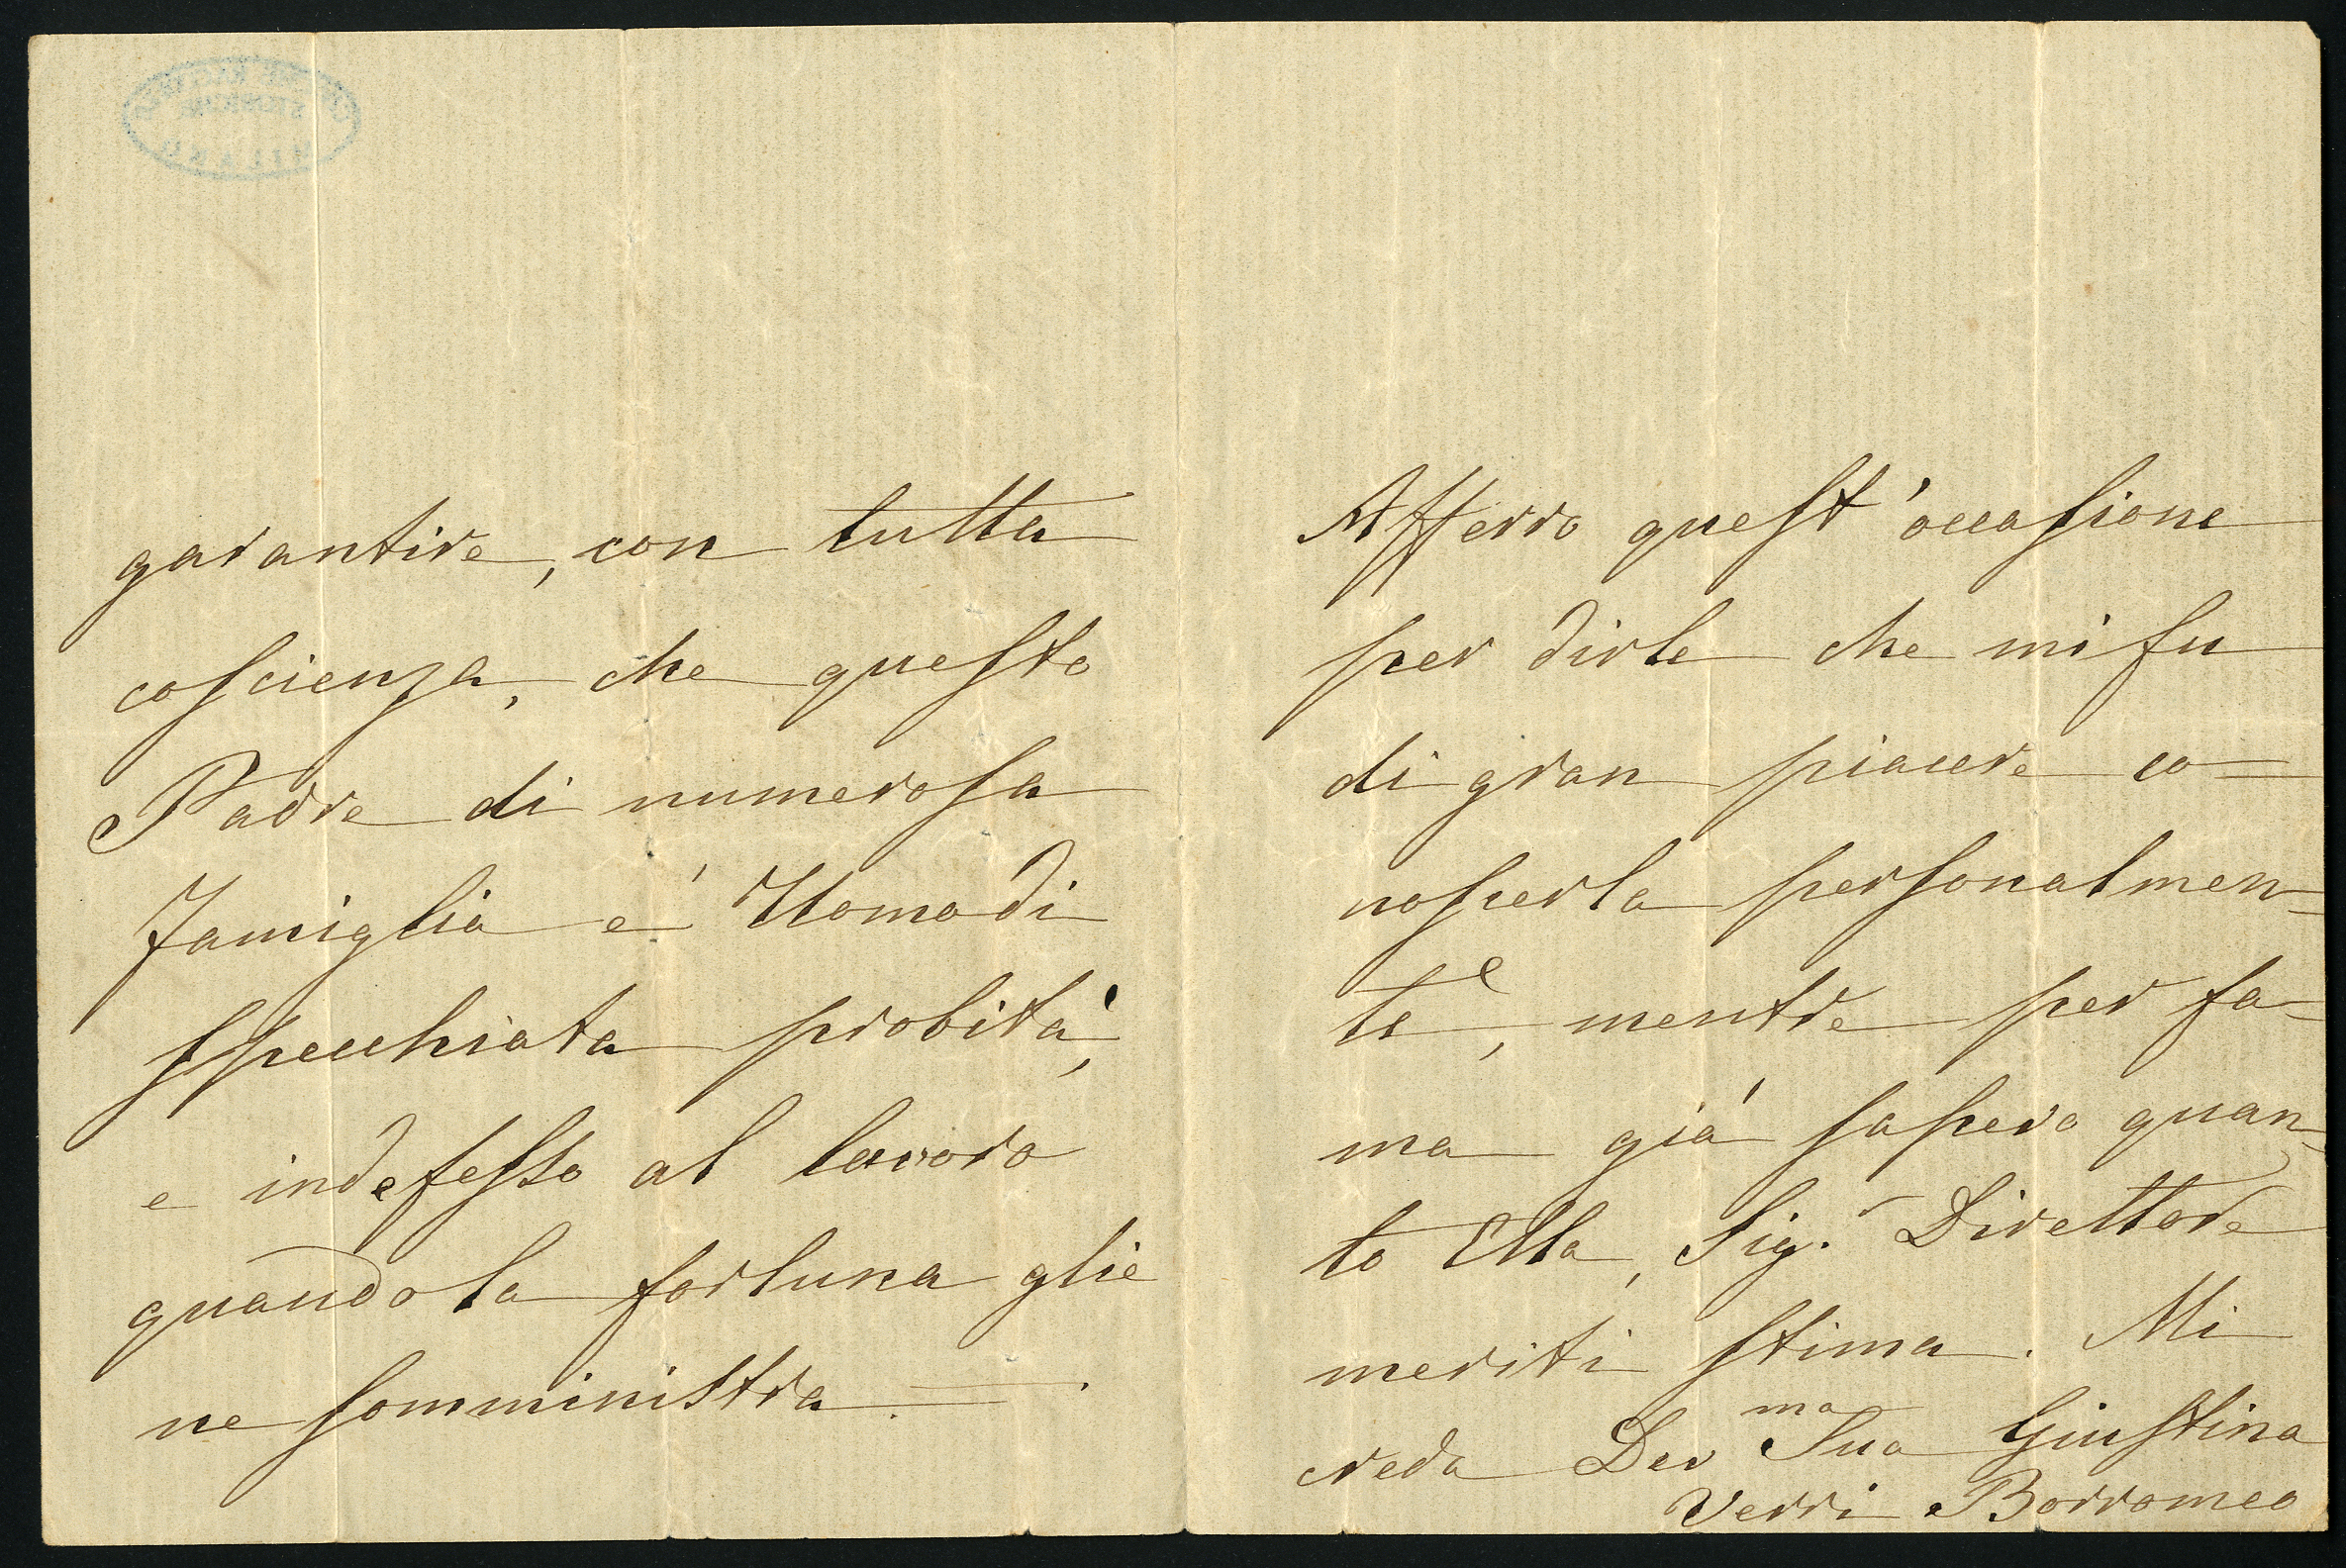 garantire, con tutta
coscienza, che questo
Padre di numerosa
famiglia è Uomo di
specchiata probità,
e indefesso al lavoro
quando la fortuna glie
ne somministra. —.
Afferro quest'occasione
per dirle che mi fu
di gran piacere co=
noscerla personalmen=
te, mentre per fa=
ma già sapevo quan=
to Ella, Sig.r Direttore
meriti stima. Mi
creda Dev ma Sua Giustina
Verri Borromeo